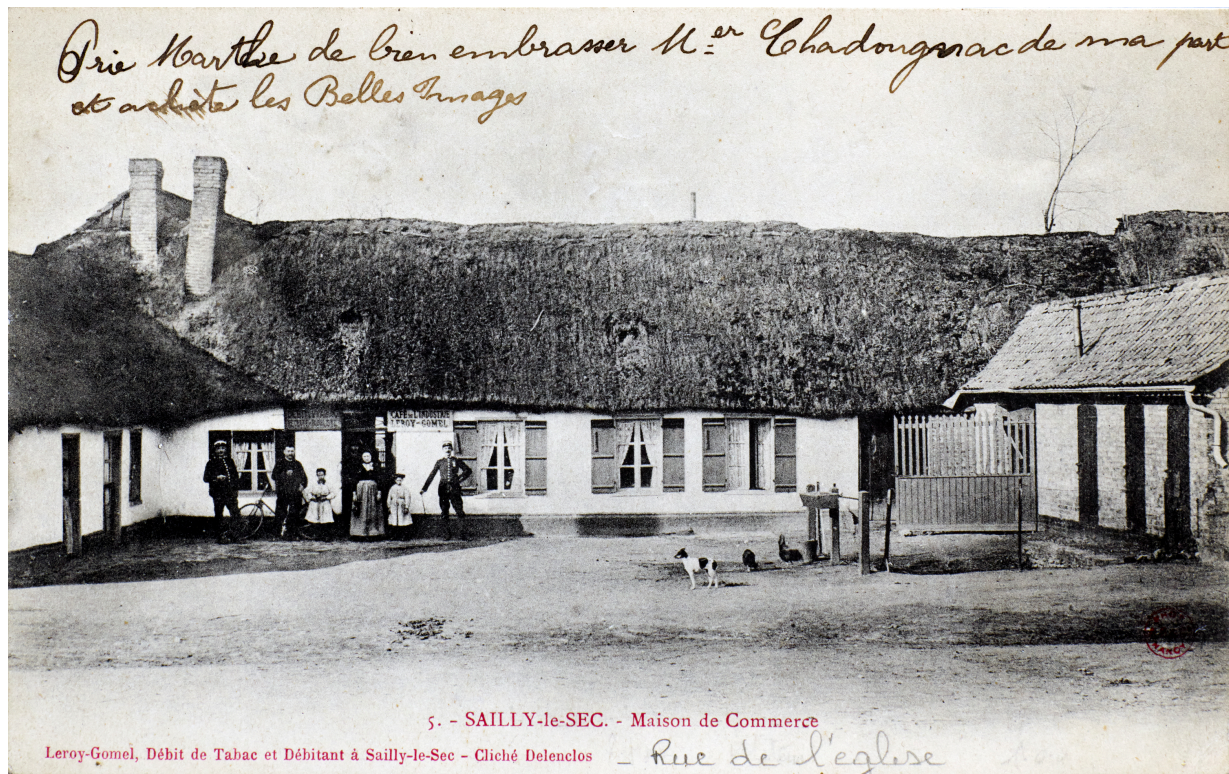 Prie Marthe de bien embrasser M.er Chadougnac de ma part
et achète les Belles Images
CAFÉ DE L'INDUSTRIE
LEROY-GOMEL
5. - SAILLY-le-SEC. - Maison de Commerce
Leroy-Gomel, Débit de Tabac et Débitant à Sailly-le-Sec - Cliché Delenclos
- Rue de l'église